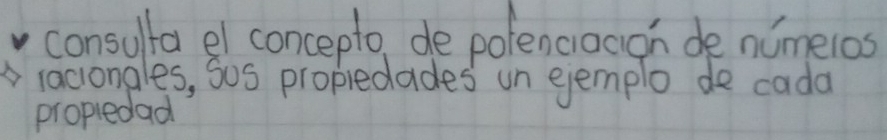 consulta el concepto de potenciación de números
racionales, sus propiedades un ejemplo de cada
propiedad